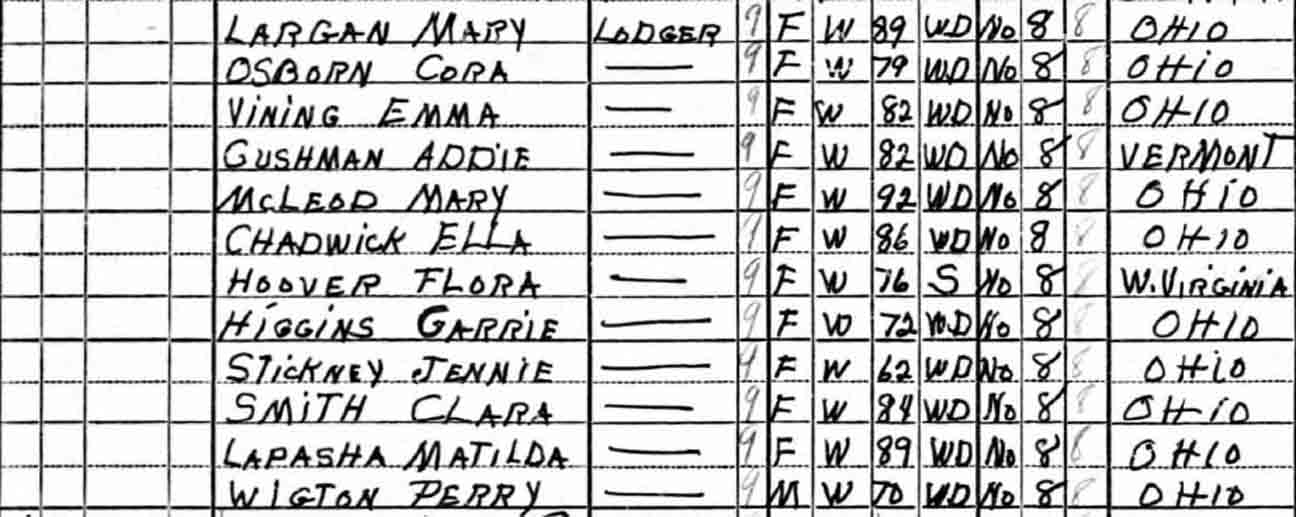 LARGAN MARY LODGER 9 F W 89 WD No 8 8 OHIO
OSBORN CORA — 9 F W 79 WD No 8 8 OHiO
ViNiNG EMMA — 9 F W 82 WD No 8 8 OHIO
GUSHMAN ADDiE — 9 F W 82 WD No 8 8 VERMONT
McLEOD MARY — 9 F W 92 WD No 8 8 OHiO
CHADWiCK ELLA — 9 F W 86 WD No 8 8 OHIO
HOOVER FLORA — 9 F W 76 S No 8 8 W.ViRGiNiA
HiGGiNS GARRiE — 9 F W 72 WD No 8 8 OHIO
STiCKNEY JENNiE — 9 F W 62 WD No 8 8 OHiO
SMiTH CLARA — 9 F W 84 WD No 8 8 OHiO
LAPASHA MATiLDA — 9 F W 89 WD No 8 8 OHIO
WIGTON PERRY — 9 M W 70 WD No 8 8 OHIO